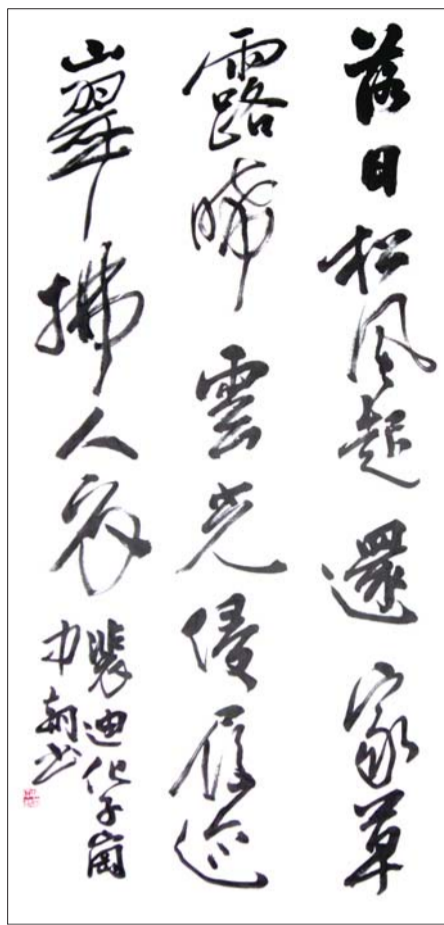 落日松風起還家草
露晞雲光侵履迹
山翠拂人衣
裴迪化子崗
中朝书